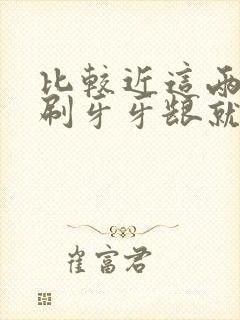 比較近這兩
刷牙牙龈就
崔富君